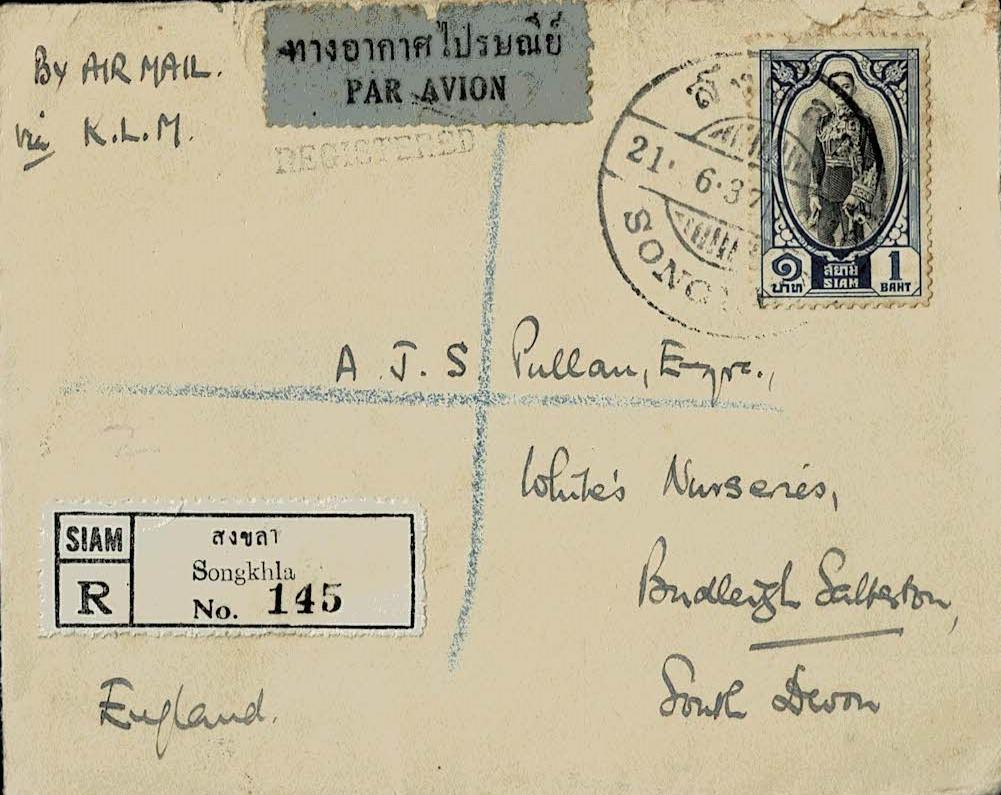 By AIR MAIL.
via K.L.M.
ทางอากาศไปรษณีย์
PAR AVION
REGISTERED
21· 6·37
๑
บาท
สยาม
SIAM
1
BAHT
A J.S Pullan, Esqre.,
White's Nurseries,
Budleigh Salterton,
South Devon
England.
SIAM
R
สงขลา
Songkhla
No. 145